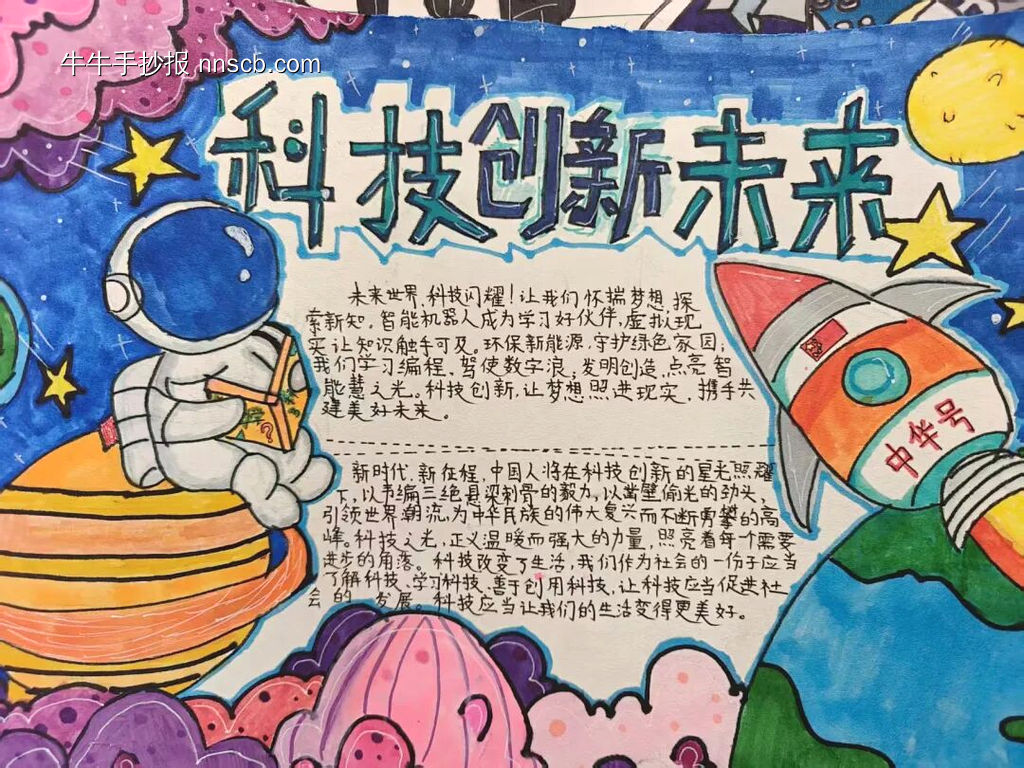 牛牛手抄报 nnscb.com
科技创新未来
未来世界,科技闪耀!让我们怀揣梦想,探
索新知,智能机器人成为学习好伙伴,虚拟现
实让知识触手可及。环保新能源,守护绿色家园;
我们学习编程,驾使数字浪;发明创造,点亮智
能慧之光。科技创新,让梦想照进现实,携手共
建美好未来。
新时代,新征程,中国人将在科技创新的星光照耀
下,以韦编三绝悬梁刺骨的毅力,以凿壁偷光的劲头,
引领世界潮流,为中华民族的伟大复兴而不断勇攀的高
峰。科技之光,正义温暖而强大的力量,照亮着每个需要
进步的角落。科技改变了生活,我们作为社会的一份子应当
了解科技、学习科技、善于创用科技,让科技应当促进社
会的 发展。科技应当让我们的生活变得更美好。
中华号